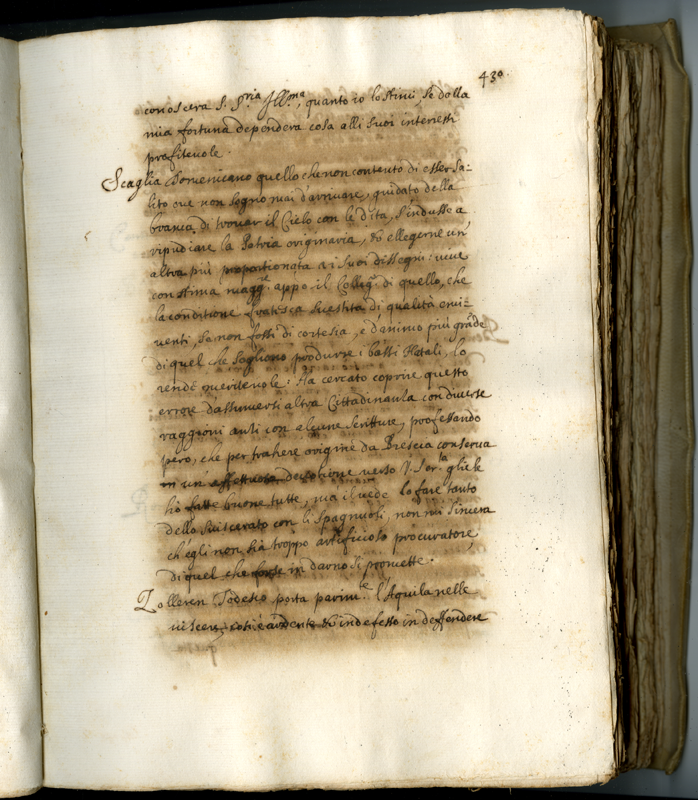 430.
conoscera S. S.ria Ill.ma, quanto io lo stimi, se dalla
mia fortuna dependera cosa alli suoi interessi
profitevole.
Scaglia Domenicano quello che non contento di esser sa=
lito ove non sognò mai d'arrivare, guidato della
brama di trovar il Cielo con le dita, s'indusse a
ripudiare la Patria originaria, et ellegerne un'
altra più proportionata ai suoi dissegni: vive
con stima magg.e appo il Colleg.o di quello, che
la conditione fratesca svestita di qualità emi=
nenti, se non fossi di cortesia, e d'animo più grãde
di quel che sogliano produrre i bassi Natali, lo
rende meritevole: Ha cercato coprire questo
errore d'assumersi altra Cittadinanza con diverse
raggioni anti con alcune scritture, professando
però, che per trahere origine da Brescia conserva
in un' affettuosa devotione verso V. Ser.ta gliele
ho fatte buone tutte, ma il vede lo fare tanto
dello sviscerato con li Spagnuoli, non mi sincera
ch'egli non sia troppo artificioso procuratore,
di quel che forse in darno si promette.
Zolleren Todesco porta parim.te l'Aquila nelle
viscere, così è ardente et indefesso in deffendere